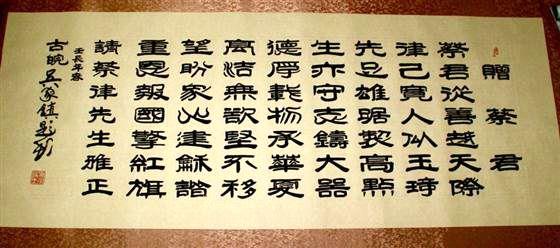 贈蔡君
蔡君從善越天際
律己寬人似玉琦
先足雄踞製高點
生亦守克鑄大器
德厚載物承華夏
高潔無欲堅不移
望盼家建龢諧
重恩報國擎紅旗
請蔡律先生雅正
壬辰年春
古皖吳家鎮題